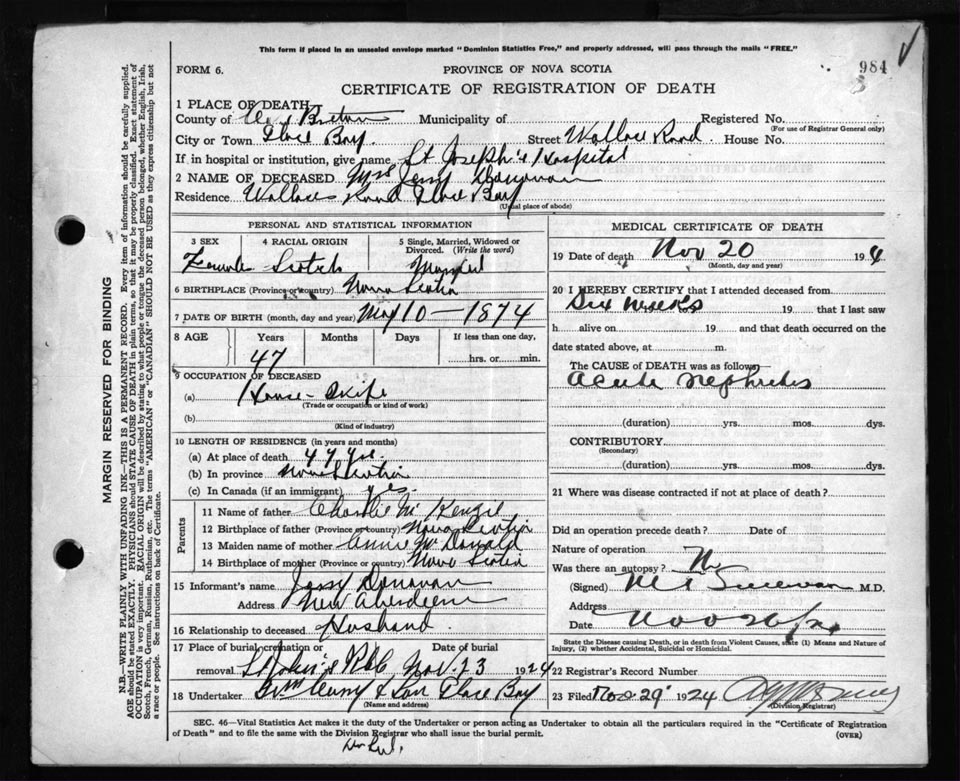 This form if placed in an unsealed envelope marked "Dominion Statistics Free," and properly addressed, will pass through the mails "FREE."
FORM 6.
PROVINCE OF NOVA SCOTIA
984
CERTIFICATE OF REGISTRATION OF DEATH
1 PLACE OF DEATH
County of Cape Breton Municipality of Registered No.
(For use of Registrar General only)
City or Town Glace Bay Street Wallace Road. House No.
If in hospital or institution, give name St Joseph's Hospital
2 NAME OF DECEASED Mrs Jerry Donovan
Residence Wallace Road Glace Bay
(Usual place of abode)
PERSONAL AND STATISTICAL INFORMATION
3 SEX 4 RACIAL ORIGIN 5 Single, Married, Widowed or Divorced. (Write the word)
Female Scotch Married
6 BIRTHPLACE (Province or country) Nova Scotia
7 DATE OF BIRTH (month, day and year) May 10 — 1874
8 AGE Years Months Days If less than one day,
47 hrs. or min.
9 OCCUPATION OF DECEASED
(a) House-Wife
(Trade or occupation or kind of work)
(b)
(Kind of industry)
10 LENGTH OF RESIDENCE (in years and months)
(a) At place of death 47 yrs.
(b) In province Nova Scotia
(c) In Canada (if an immigrant) yes.
Parents
11 Name of father Charlie McKenzie
12 Birthplace of father (Province or country) Nova Scotia
13 Maiden name of mother Annie McDonald
14 Birthplace of mother (Province or country) Nova Scotia
15 Informant's name Jerry Donovan
Address New Aberdeen
16 Relationship to deceased Husband.
17 Place of burial, cremation or removal Date of burial
St John's Nov. 23 1924
18 Undertaker Glace Bay
(Name and address)
MEDICAL CERTIFICATE OF DEATH
19 Date of death Nov 20 1924
(Month, day and year)
20 I HEREBY CERTIFY that I attended deceased from
Six weeks 19 that I last saw
h alive on 19 and that death occurred on the
date stated above, at m.
The CAUSE of DEATH was as follows
Acute Nephritis
(duration) yrs. mos. dys.
CONTRIBUTORY
(Secondary)
(duration) yrs. mos. dys.
21 Where was disease contracted if not at place of death?
Did an operation precede death? Date of
Nature of operation
Was there an autopsy? No
(Signed) M.D.
Address
Date
State the Disease causing Death, or in death from Violent Causes, state (1) Means and Nature of Injury, (2) whether Accidental, Suicidal or Homicidal.
22 Registrar's Record Number
23 Filed Nov 29 1924
(Division Registrar)
SEC. 46—Vital Statistics Act makes it the duty of the Undertaker or person acting as Undertaker to obtain all the particulars required in the "Certificate of Registration
of Death" and to file the same with the Division Registrar who shall issue the burial permit.
(OVER)
MARGIN RESERVED FOR BINDING
N.B.—WRITE PLAINLY WITH UNFADING INK—THIS IS A PERMANENT RECORD. Every item of information should be carefully supplied.
AGE should be stated EXACTLY. PHYSICIANS should STATE CAUSE OF DEATH in plain terms, so that it may be properly classified. Exact statement of
OCCUPATION is very important. RACIAL ORIGIN will be described by stating to what people or tongue the deceased person belonged, whether English, Irish,
Scotch, French, German, Russian, Ruthenian, etc. The terms "AMERICAN" or "CANADIAN" SHOULD NOT BE USED as they express citizenship but not
a race or people. See instructions on back of Certificate.